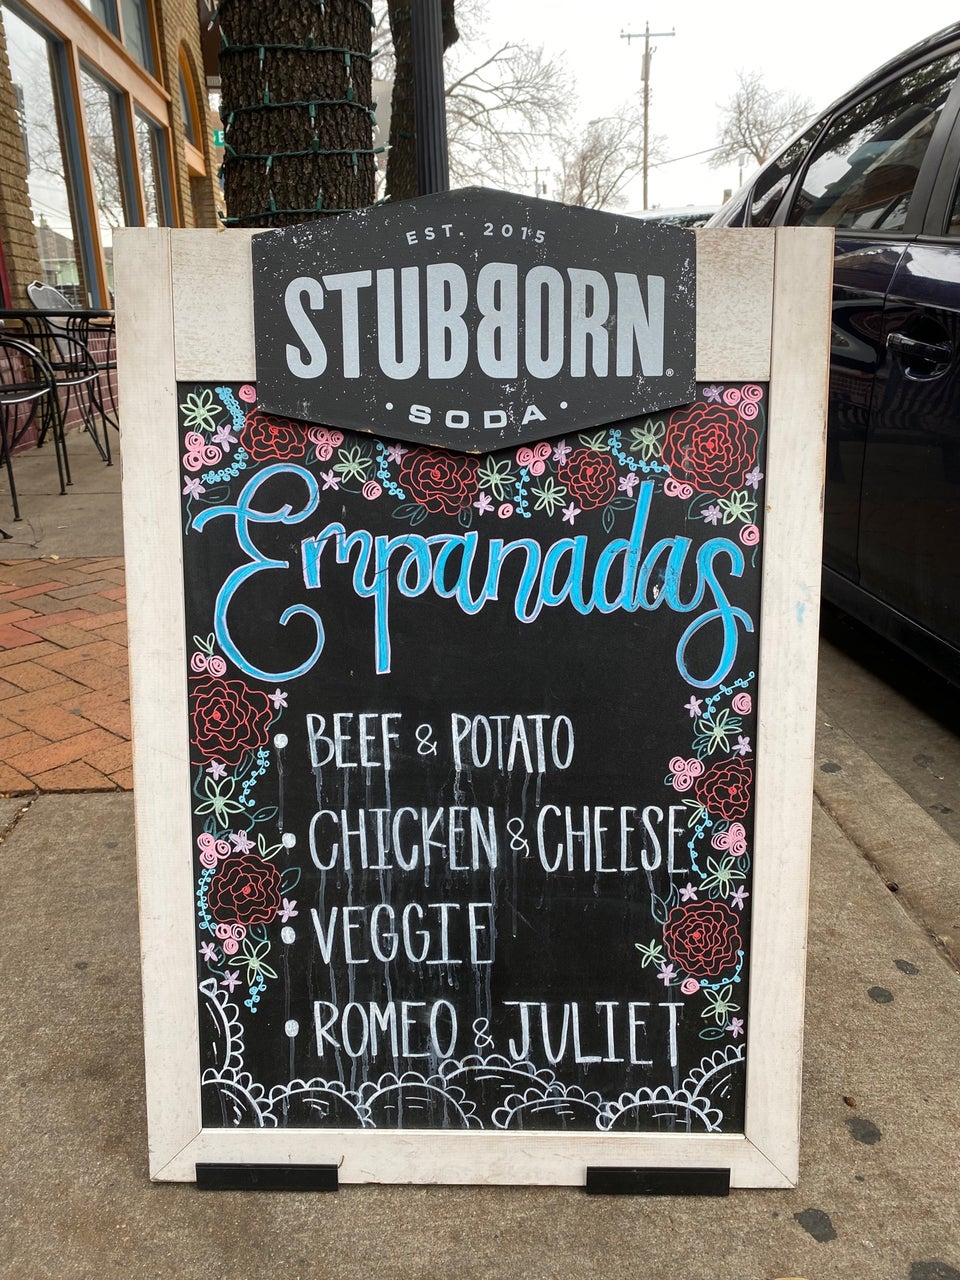 EST. 2015
STUBBORN®
• SODA •
Empanadas
• BEEF & POTATO
• CHICKEN & CHEESE
• VEGGIE
• ROMEO & JULIET